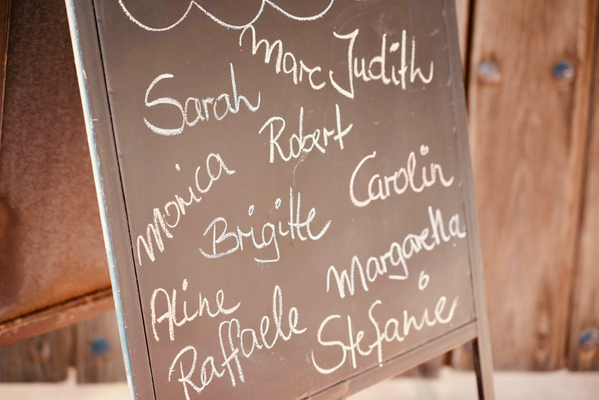 Marc Judith
Sarah
Robert
Monica
Carolin
Brigitte
Margaretha
Aline
Raffaele
Stefanie